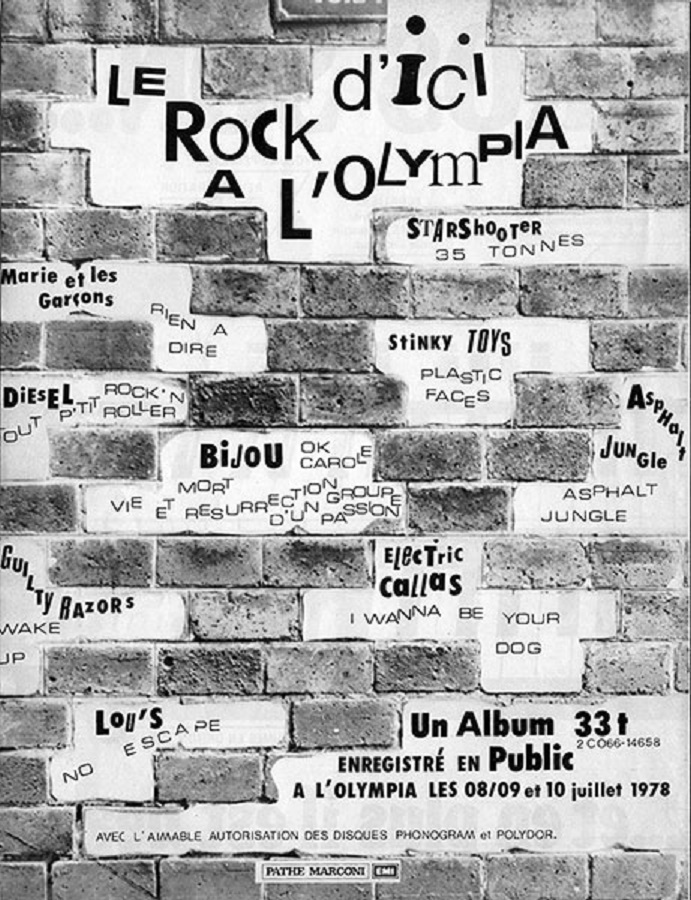 LE d'ici
RocK
A L'OLYmPIA
STARShooTeR
35 TONNES
Marie et les
Garçons
RIEN A
DIRE
StiNKY TOYS
PLASTIC
FACES
DiESEL ROCK'N
P'TIT ROLLER
OUT
ASPHAlt
JUNGle
ASPHALT
JUNGLE
BiJOU OK
CAROLE
MORT
VIE ET RESURRECTION GROUPE
D'UN PASSION
GUILTY RAZORS
WAKE
UP
ElecTric
Callas
I WANNA BE YOUR
DOG
LOU'S
NO ESCAPE
Un Album 33t
2 C066-14658
ENREGISTRÉ EN Public
A L'OLYMPIA LES 08/09 et 10 juillet 1978
AVEC L'AIMABLE AUTORISATION DES DISQUES PHONOGRAM et POLYDOR.
PATHE MARCONI EMI